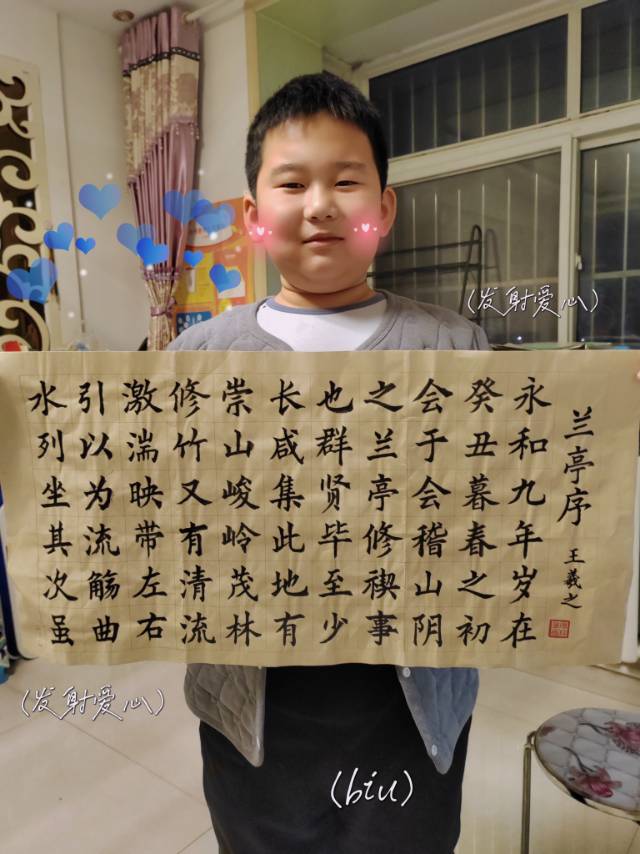 兰亭序
王羲之
永和九年岁在
癸丑暮春之初
会于会稽山阴
之兰亭修禊事
也群贤毕至少
长咸集此地有
崇山峻岭茂林
修竹又有清流
激湍映带左右
引以为流觞曲
水列坐其次虽
(发射爱心)
(发射爱心)
(biu)